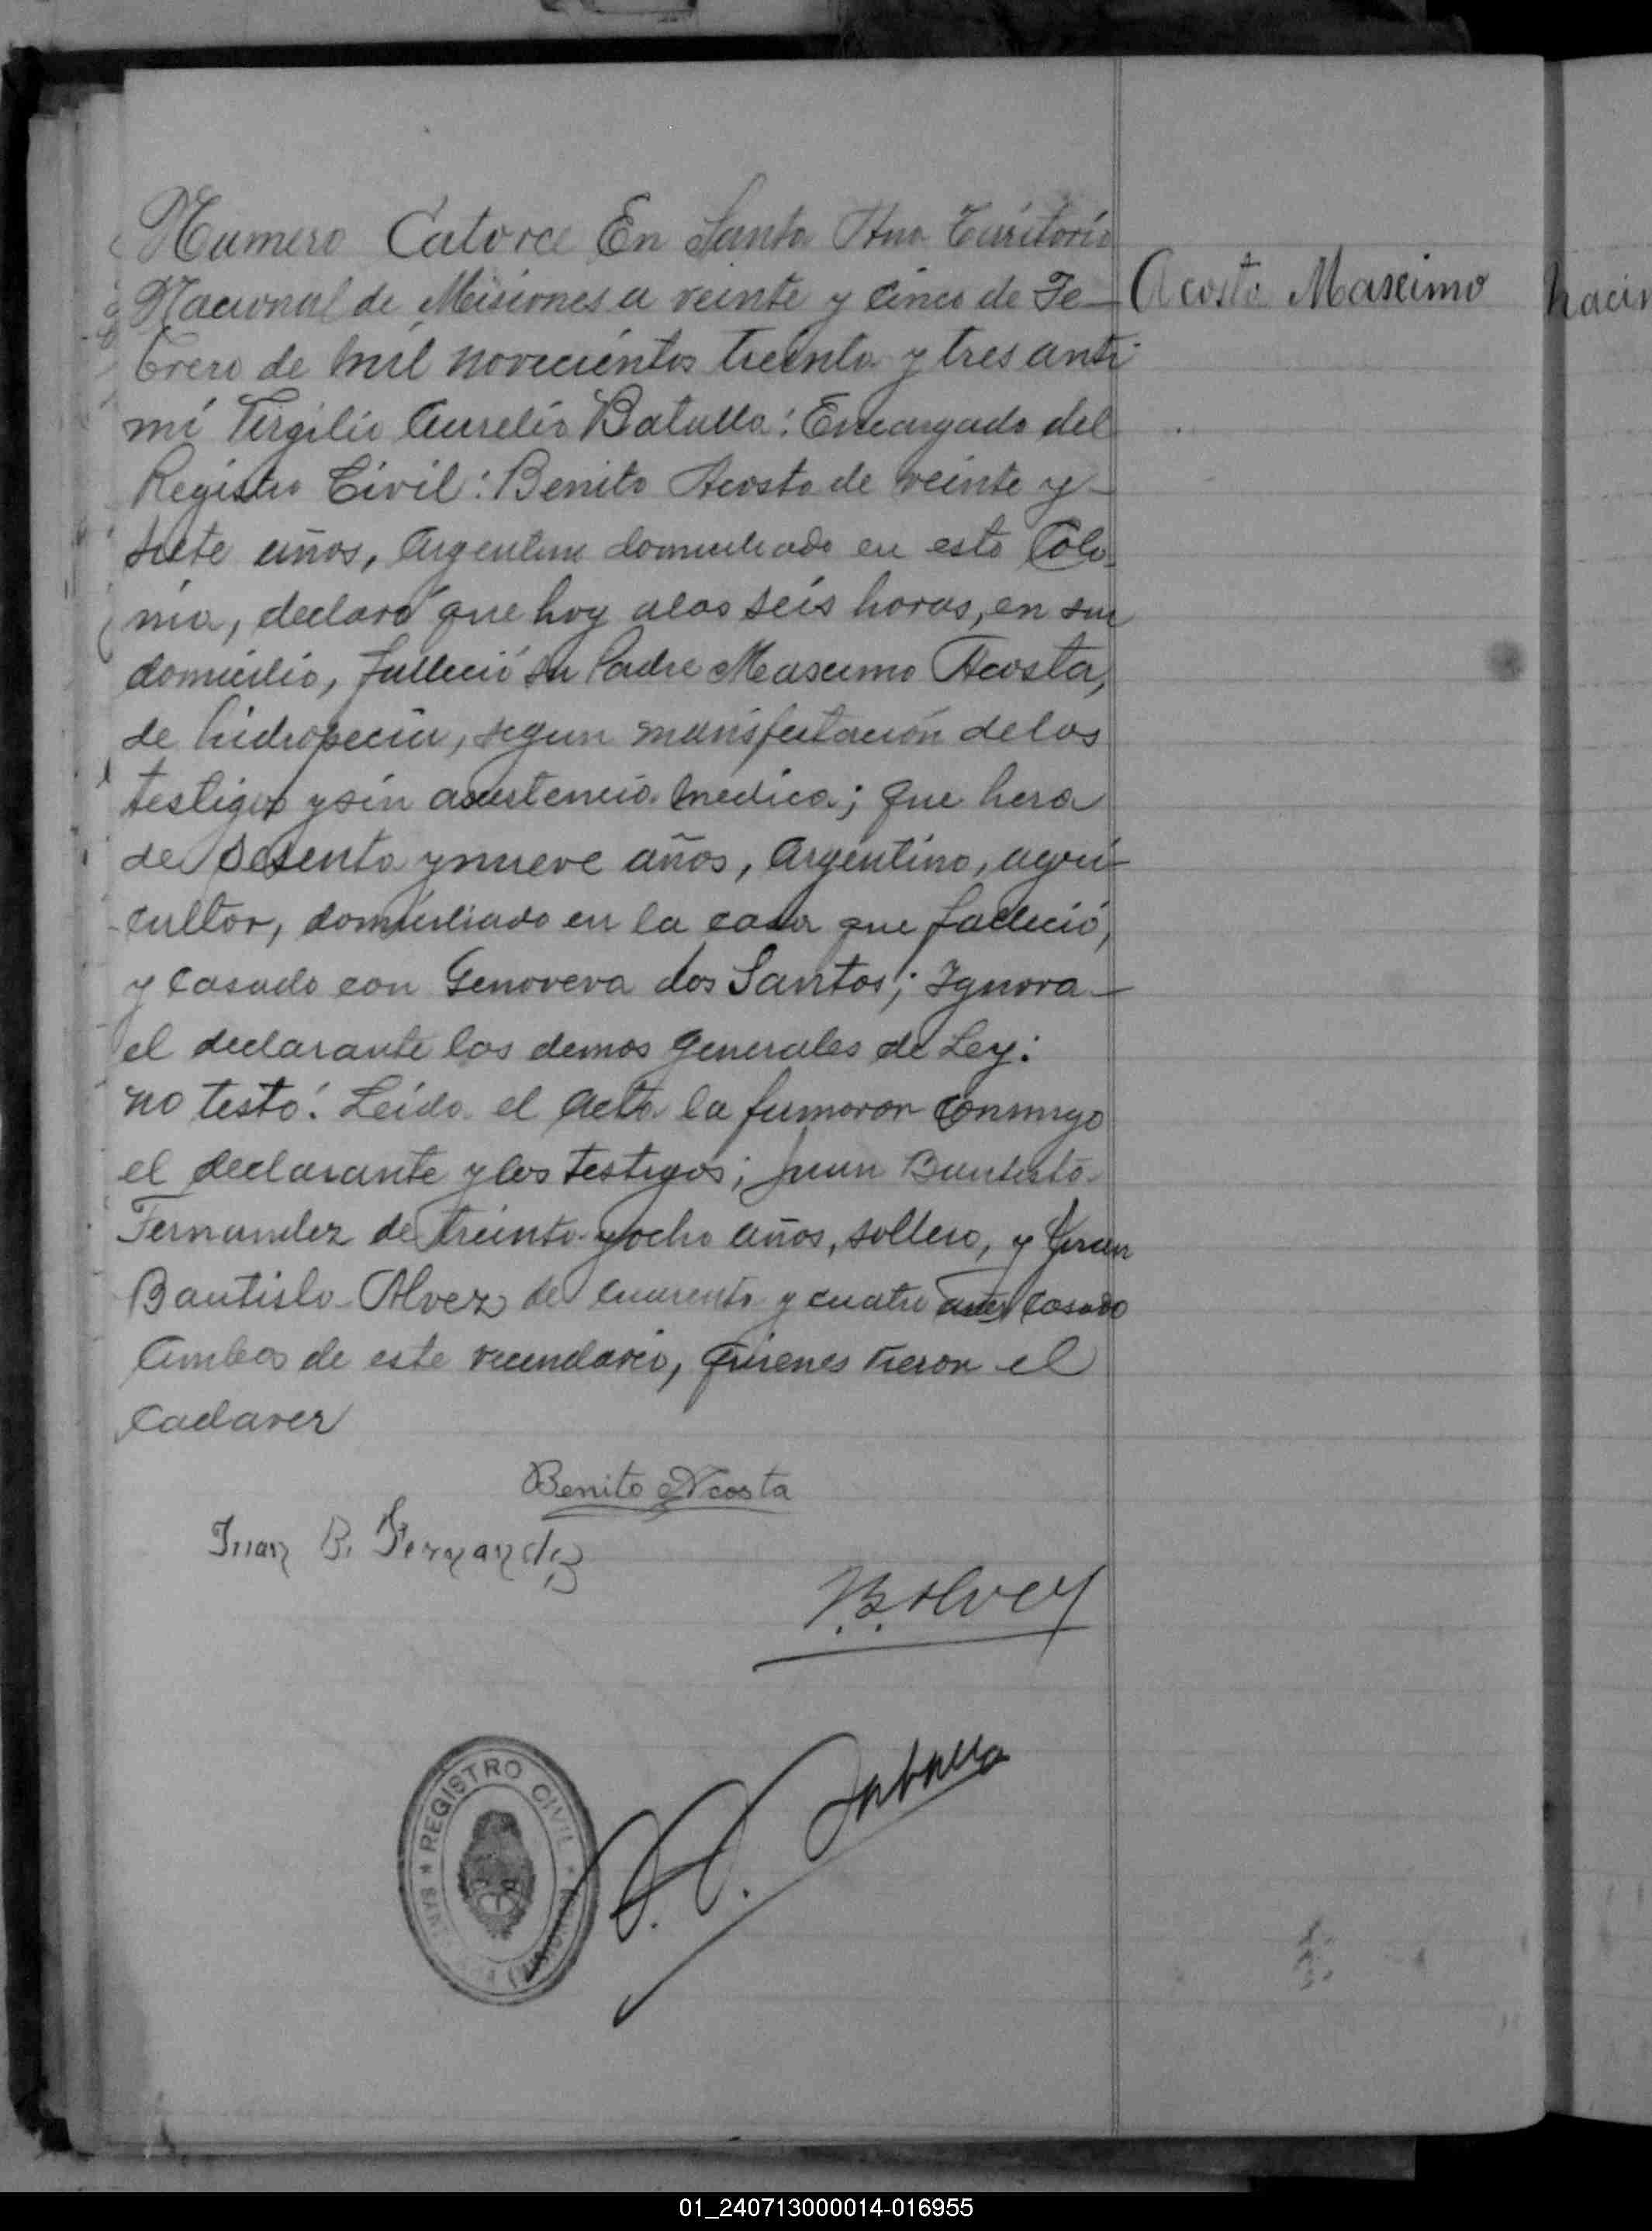 Numero Catorce En Santa Ana Territorio
Nacional de Misiones a veinte y cinco de Fe-
brero de mil novecientos treinta y tres ante
mi Virgilio Aurelio Batalla: Encargado del
Registro Civil: Benito Acosta de veinte y
siete años, Argentino domiciliado en esta Colo-
nia, declaró que hoy alas seis horas, en su
domicilio, falleció su Padre Mascimo Acosta,
de hidropecia, segun manisfestación delos
testigos y sin asistencia medica; que hera
de sesenta y nueve años, Argentino, agri-
cultor, domiciliado en la casa que falleció,
y Casado con Genoveva dos Santos; Ignora
el declarante las demas generales de Ley:
no testó: Leida el Acta la firmaron conmigo
el declarante y los testigos; Juan Bautista
Fernandez de treinta y ocho años, soltero, y Juan
Bautista Alvez de cuarenta y cuatro años Casado
Ambos de este vecindario, quienes vieron el
Cadaver
Acosta Mascimo
nacim
Benito Acosta
Juan B. Fernandez
B. Alvez
REGISTRO CIVIL
01_240713000014-016955